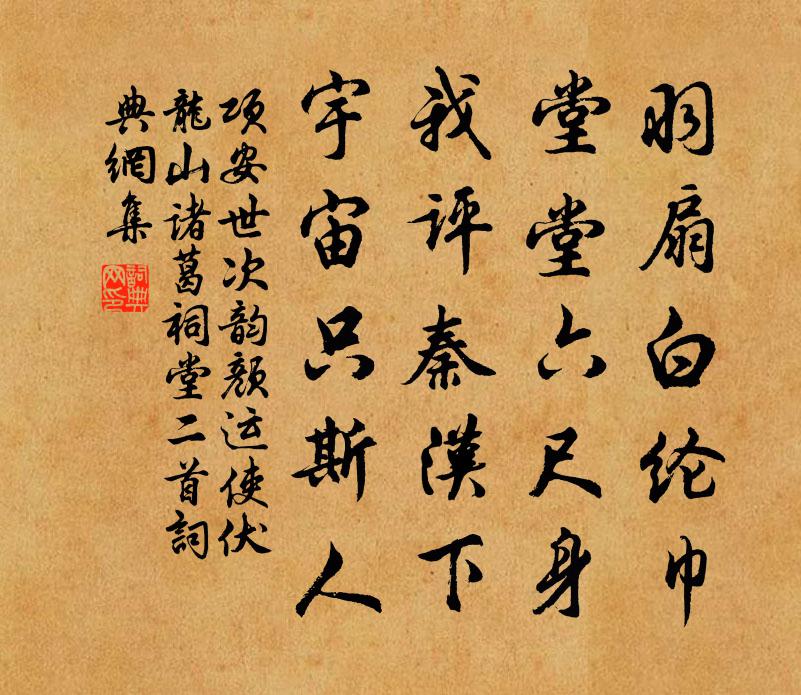 羽扇白纶巾
堂堂六尺身
我评秦漢下
宇宙只斯人
项安世次韵颜运使伏
龍山诸葛祠堂二首詞
典網集
詞典
网印